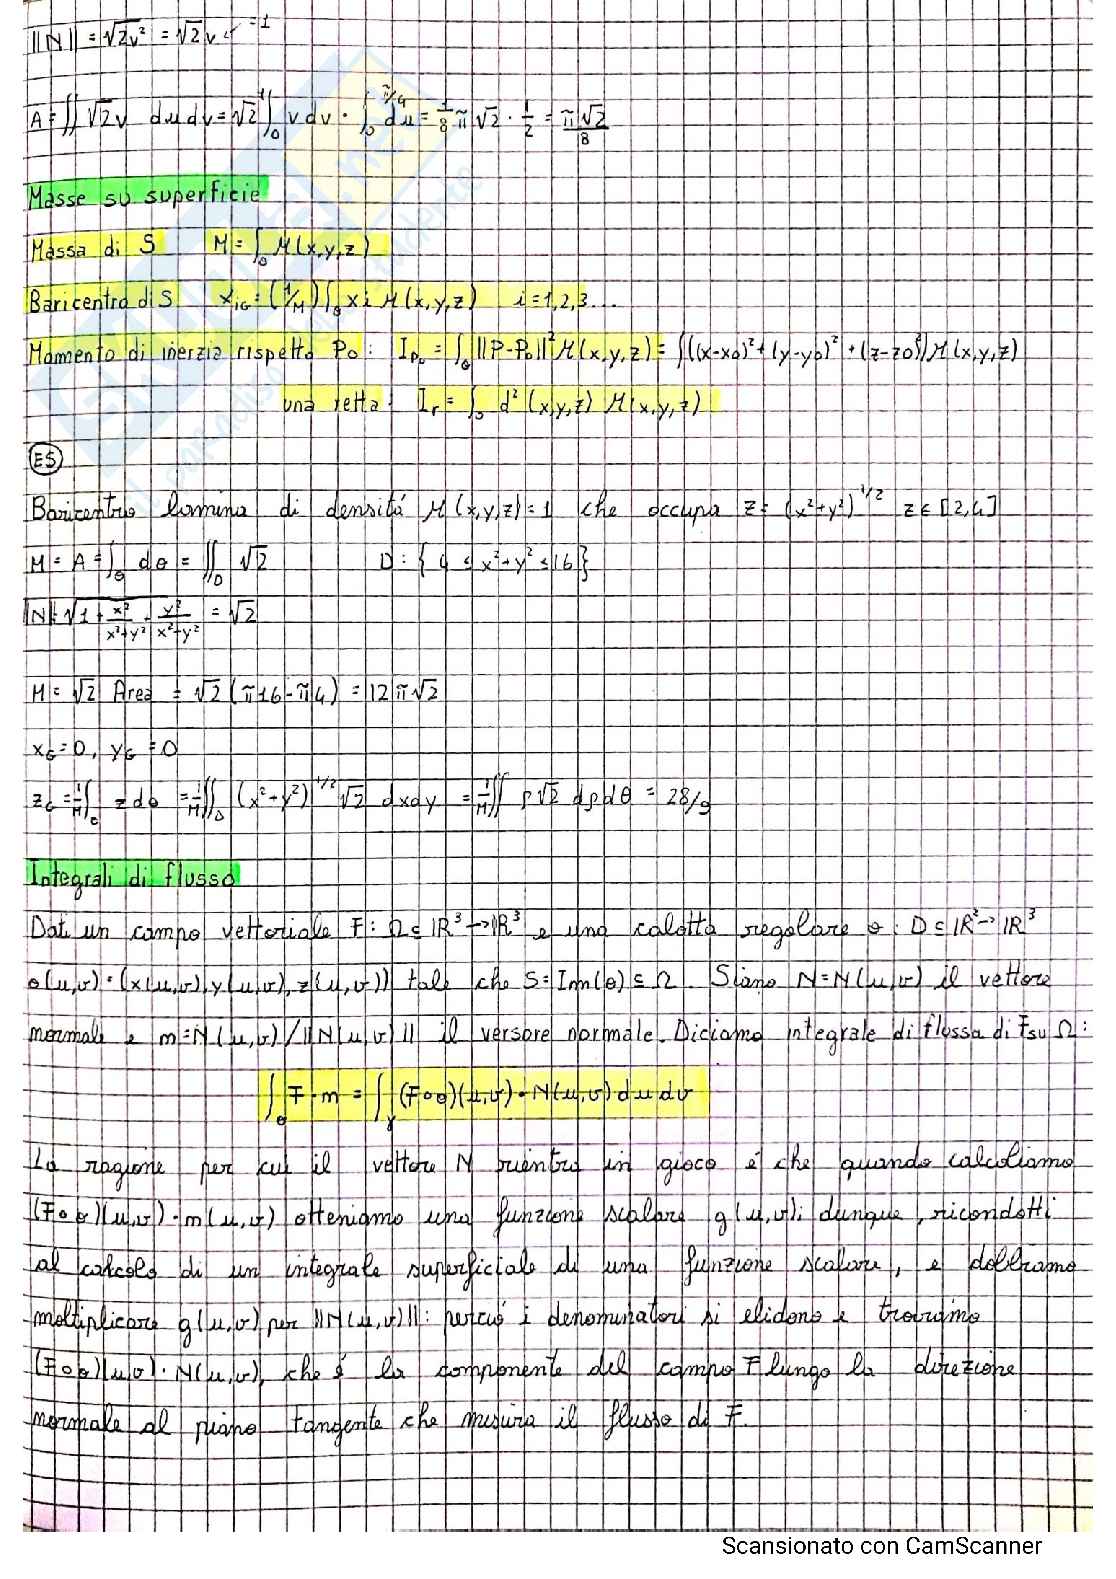 ||N|| = √2v² = √2 v =1
A = ∬ √2v du dv = √2 ∫₀¹ v dv · ∫₀^π/4 du = 1/8 π √2 · 1/2 = π√2/8
Masse su superficie
Massa di S M = ∫σ M(x,y,z)
Baricentro di S x_iG = (1/M) ∫σ xi M(x,y,z) i=1,2,3...
Momento di inerzia rispetto P₀: I_P₀ = ∫σ ||P-P₀||² M(x,y,z) = ∫((x-x0)²+(y-y0)²+(z-z0)²) M(x,y,z)
una retta: I_r = ∫σ d²(x,y,z) M(x,y,z)
ES
Baricentro lamina di densitá M(x,y,z)=1 che occupa z = (x²+y²)^1/2 z∈[2,4]
M = A = ∫σ dσ = ∬_D √2 D: {4 ≤ x²+y² ≤ 16}
|N| = √1 + x²/x²+y² + y²/x²+y² = √2
M = √2 Area = √2 (π16 - π4) = 12π√2
x_G = 0, y_G = 0
z_G = 1/M ∫σ z dσ = 1/M ∬_D (x²+y²)^1/2 √2 dxdy = 1/M ∬ ρ√2 dρdθ = 28/9
Integrali di flusso
Dati un campo vettoriale F: Ω⊆ℝ³→ℝ³ e una calotta regolare σ: D⊆ℝ²→ℝ³
σ(u,v) = (x(u,v), y(u,v), z(u,v)) tale che S=Im(σ) ⊆ Ω. Siano N=N(u,v) il vettore
normale e n=N(u,v)/||N(u,v)|| il versore normale. Diciamo integrale di flusso di F su Ω:
∫σ F·n = ∫γ (F∘σ)(u,v)·N(u,v) du dv
La ragione per cui il vettore N rientra in gioco é che quando calcoliamo
(F∘σ)(u,v)·n(u,v) otteniamo una funzione scalare g(u,v); dunque, ricondotti
al calcolo di un integrale superficiale di una funzione scalare, e dobbiamo
moltiplicare g(u,v) per ||N(u,v)||: perció i denominatori si elidono e troviamo
(F∘σ)(u,v)·N(u,v), che é la componente del campo F lungo la direzione
normale al piano tangente che misura il flusso di F.
Scansionato con CamScanner